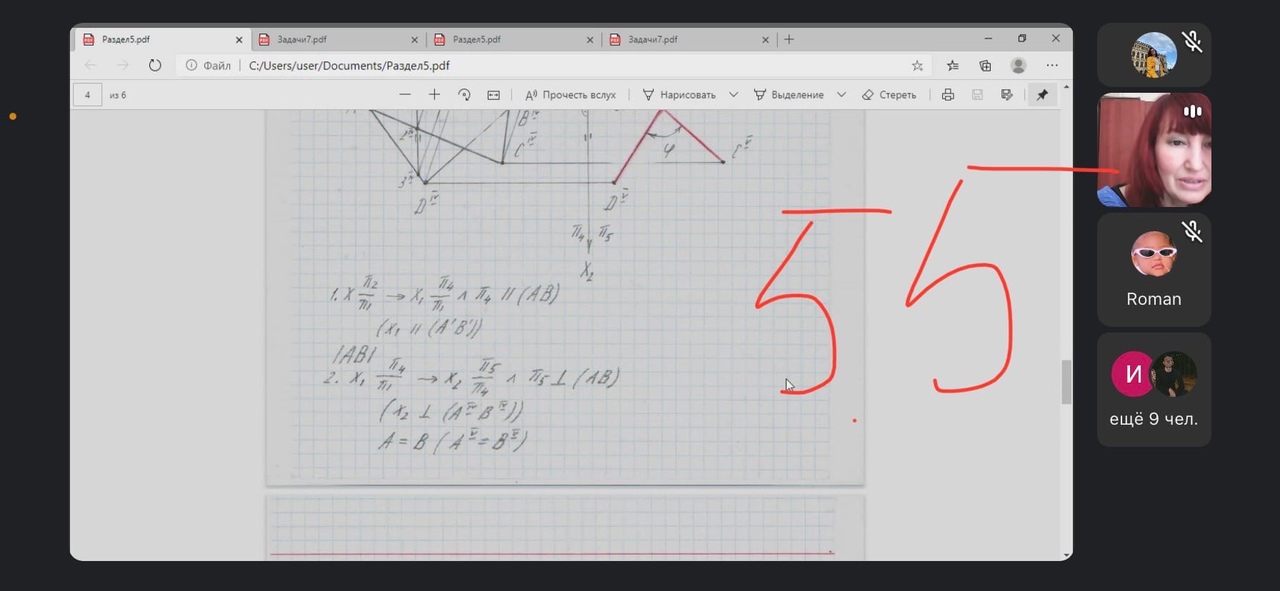 Раздел5.pdf
Задачи7.pdf
Раздел5.pdf
Задачи7.pdf
Файл
C:/Users/user/Documents/Раздел5.pdf
4 из 6
Прочесть вслух
Нарисовать
Выделение
Стереть
B^IV
2^IV
C^IV
φ
C^V
3^IV
D^IV
D^V
π4 π5
X2
1. X π2/π1 → X1 π4/π1 ∧ π4 || (AB)
(X1 || (A'B'))
|AB|
2. X1 π4/π1 → X2 π5/π4 ∧ π5 ⊥ (AB)
(X2 ⊥ (A^IV B^IV))
A = B (A^V = B^V)
5 5
Roman
И
ещё 9 чел.